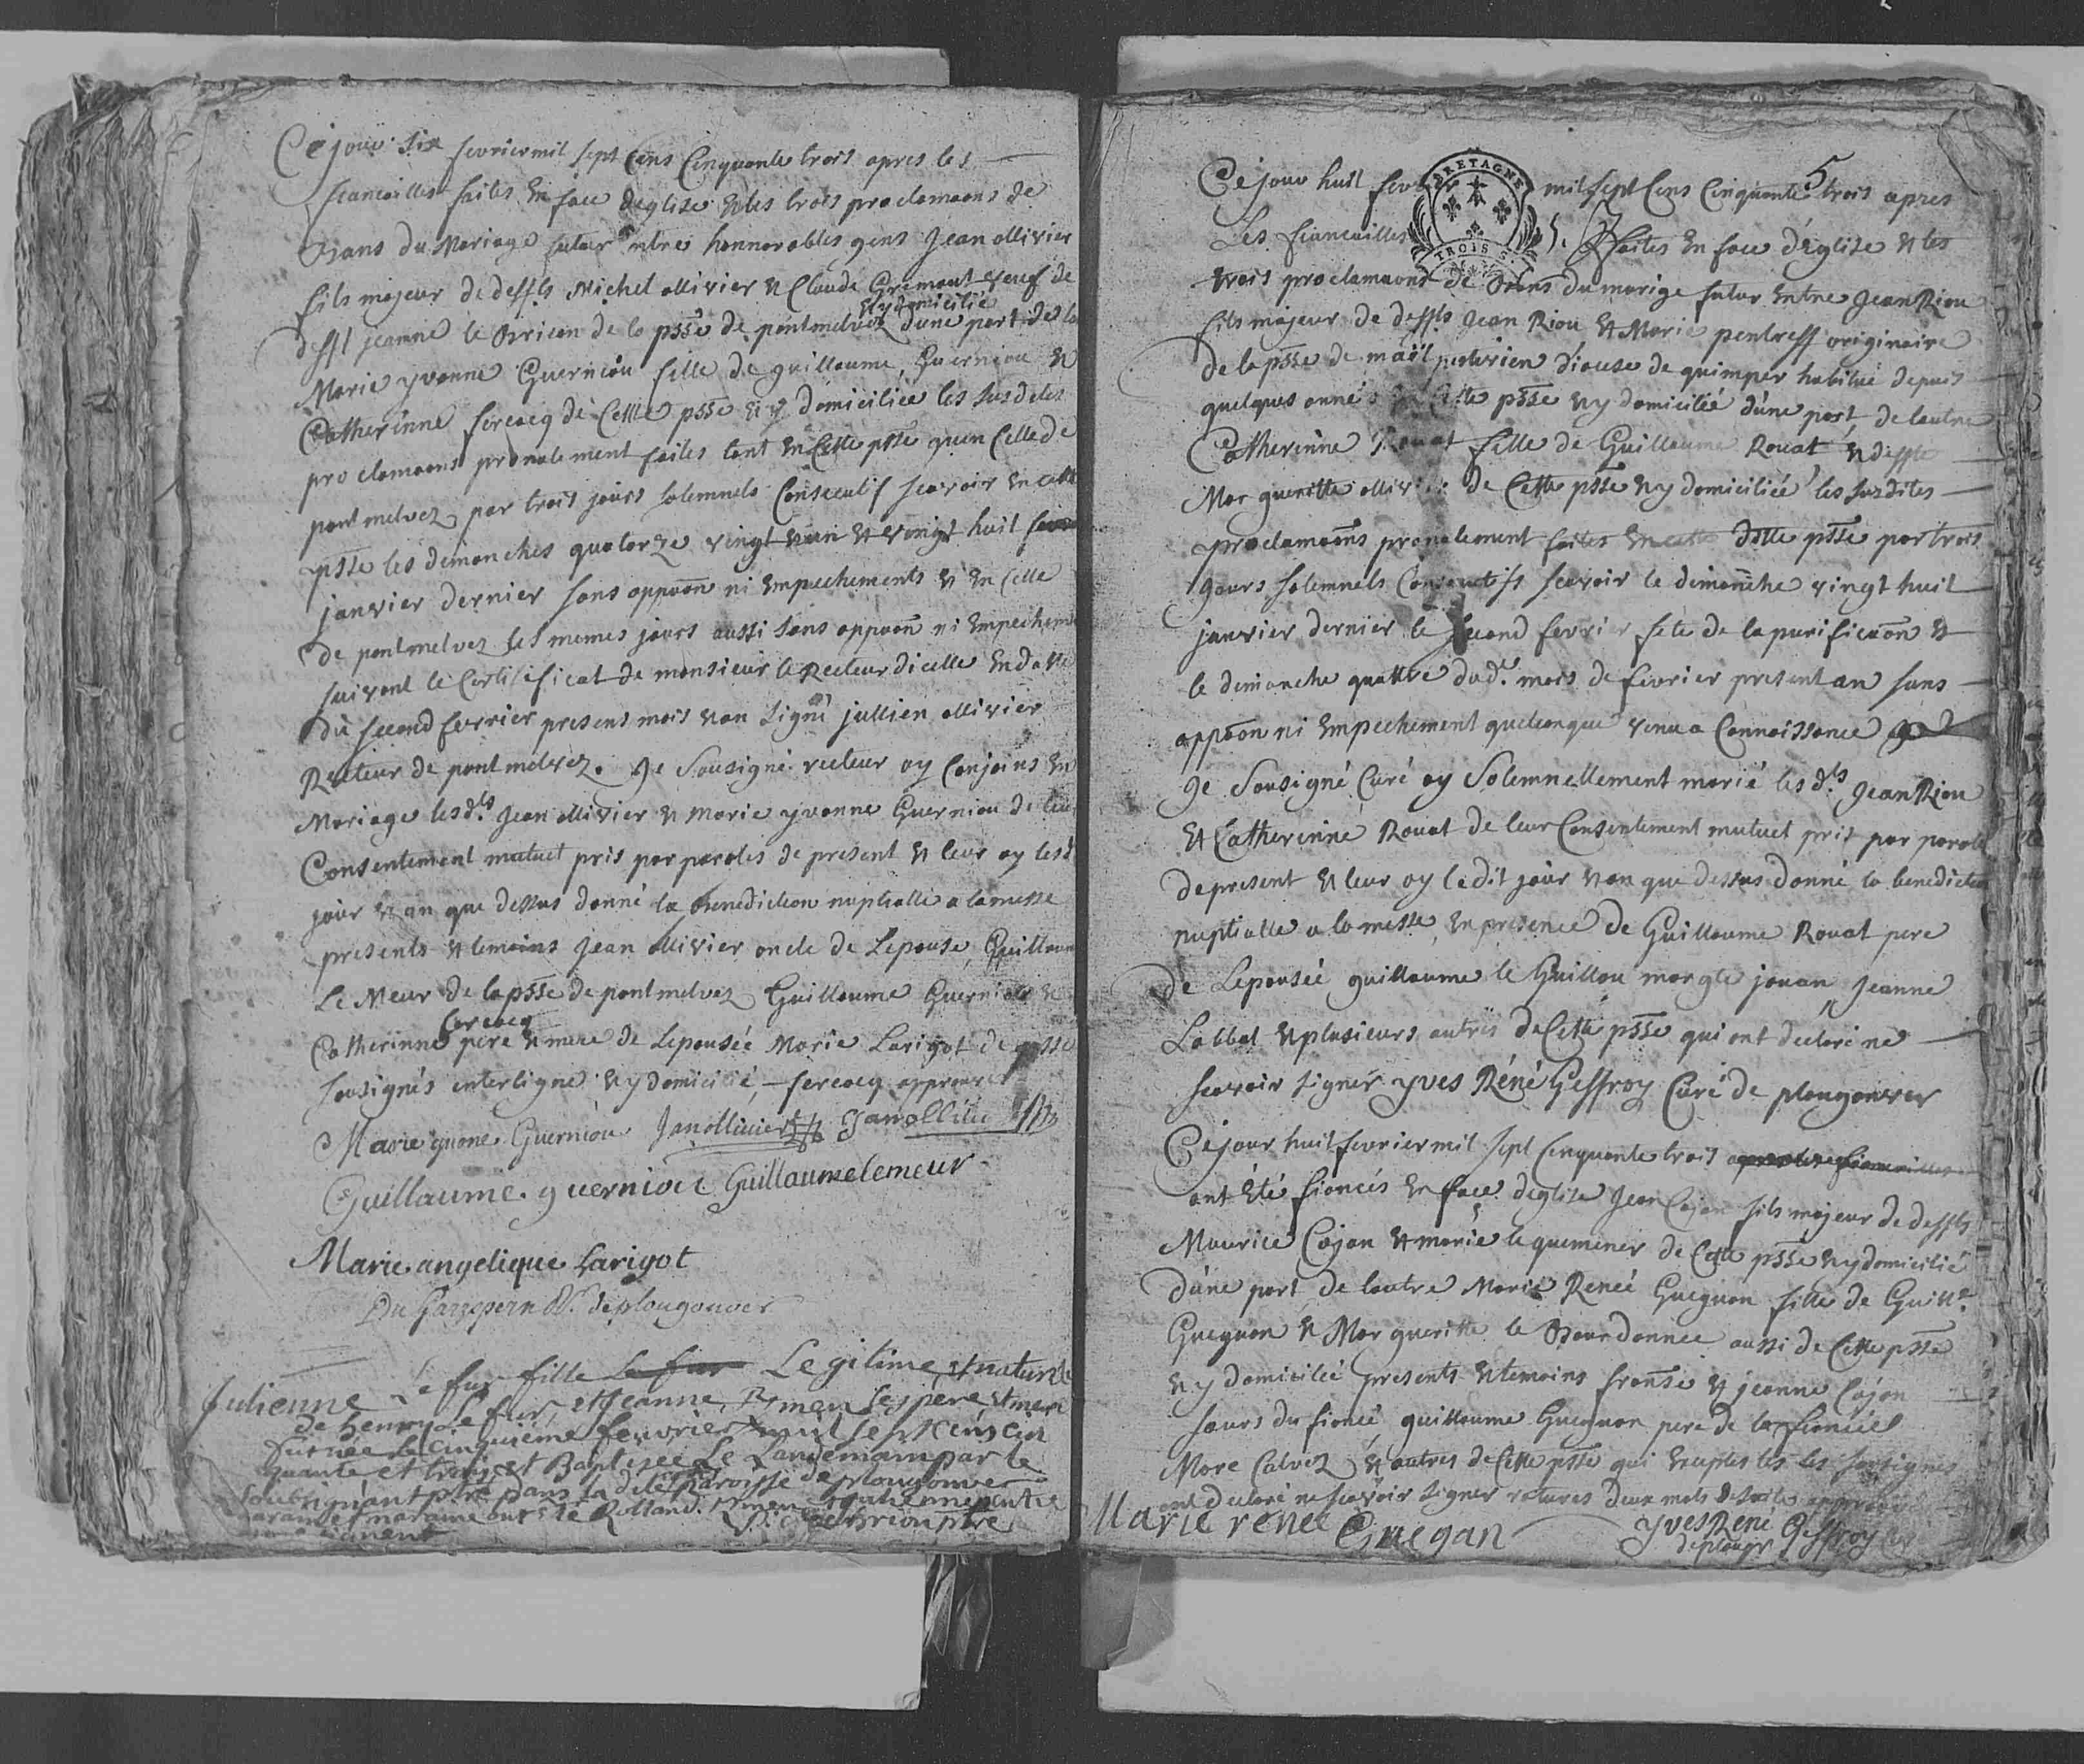 Ce jour six fevrier mil sept Cens Cinquante trois apres les
fiancailles faites En face deglise Et les trois proclamaons de
Bans du Mariage futur entre honnorables gens Jean ollivier
fils majeur de deffts Michel ollivier Et Claude Veuf de
Et y domicilié
defft jeanne le Bricon de la psse de pontmelvez d'une part de la
Marie yvonne Guerniou fille de guillaume Guerniou Et
Catherinne fercocq de Cette psse Et y domiciliée les susdites
proclamaons pronalement faites tant En Cette psse quen Celle de
pontmelvez par trois jours solemnels Consecutif scavoir en cette
psse les dimanches quatorze vingt Et un Et vingt huit
janvier dernier sans oppoon ni Empechements Et En Celle
de pontmelvez les memes jours aussi sans oppoon ni Empechem
suivant le Certificat de monsieur le Recteur dicelle En datte
du second fevrier present mois Et an signé jullien ollivier
Recteur de pontmelvez. Je Sousigné recteur ay Conjoins En
Mariage lesdts Jean ollivier Et Marie yvonne Guerniou de leur
Consentement mutuel pris par paroles de present Et leur ay lesd
jour Et an que dessus donné la Benediction nuptialle a la messe
presents Et temoins Jean ollivier oncle de Lepouse, Guillaume
Le Meur de la psse de pontmelvez Guillaume Guerniou Et
fercocq
Catherinne pere Et mere de Lepousée Marie Larigot de
sousignés interligne Et y domicilié, – fercocq approuvés
Marie yuone Guerniou Jan ollivier Jan ollivier
Guillaume. guerniou Guillaume le meur
Marie angelique Larigot
Du Garzspern Rr. de plougonver
Julienne Le fur fille Le fur Legitime et naturelle
de henry Le fur et Jeanne Bmen ses pere et mere
Est née Le cinquiéme feuvrier mil sept cens cin
quante et trois et Baptisée Le Landemain par le
soubsignant ptre dans la dite paroisse de plougonver
parain et maraine ont eté Rolland. et
signent ptre
Ce jour huit fevrier mil sept Cens Cinquante trois apres
5
BRETAGNE
TROIS S.
Les fiancailles faites En face d'église Et les
trois proclamaons de Bans du marige futur Entre Jean Riou
fils majeur de deffts Jean Riou Et Marie pentreff originaire
de la psse de maël pestivien diocuse de quimper habitué depuis
quelques anné Cette psse Et y domicilié d'une part, de lautre
Catherinne Rouat fille de Guillaume Rouat Et deffte
Margueritte ollivier de Cette psse Et y domiciliée les susdites
proclamaons pronalement faites En cette ditte psse par trois
jours solemnels Consecutifs scavoir le dimanche vingt huit
janvier dernier le second fevrier fete de la purificaon Et
le dimanche quattre dud. mois de fevrier present an sans
oppoon ni Empechement quelconque venu a Connoissance
Je Sousigné Curé ay Solemnellement marié les dts Jean Riou
Et Catherinne Rouat de leur Consentement mutuel pris par parole
de present Et leur ay le dit jour Et an que dessus donné la benediction
nuptialle a la messe, En presence de Guillaume Rouat pere
de Lepousée guillaume le Guillou margte jouan Jeanne
Labbat Et plusieurs autres de Cette psse qui ont declaré ne
scavoir signer yves Réné Geffroy Curé de plougonver
Ce jour huit fevrier mil sept Cinquante trois apres les fiancailles
ont Été fiancés En face deglise Jean Cojan fils majeur de deffts
Maurice Cojan Et marie le quemener de Cette psse Et y domicilié
d'une part de lautre Marie Reneé Gueguan fille de Guille
Gueguan Et Margueritte le Bourdonnec aussi de Cette psse
Et y domiciliée presents Et temoins franse Et jeanne Cojan
sœurs du fiancé guillaume Guegnan pere de la fiancée
Marc Calvez Et autres de Cette psse qui Exeptes les les sousignes
ont declaré ne scavoir signer ratures deux mots
Marie renee Guegan
yves René Geffroy
de plougr